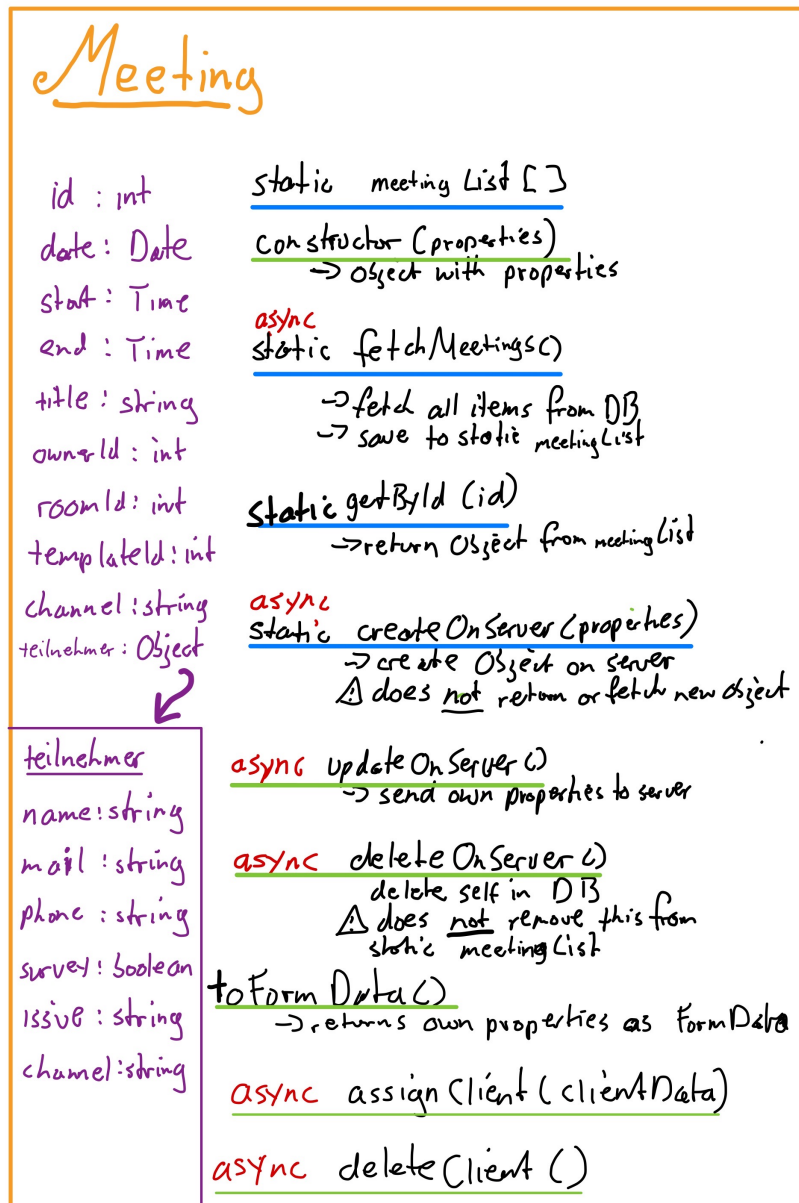 Meeting
id : int
date : Date
start : Time
end : Time
title : string
ownerId : int
roomId : int
templateId : int
channel : string
teilnehmer : Object
teilnehmer
name : string
mail : string
phone : string
survey : boolean
issue : string
channel : string
static meetingList []
constructor (properties)
→ Object with properties
async
static fetchMeetings()
→ fetch all items from DB
→ save to static meetingList
static getById (id)
→ return Object from meetingList
async
static createOnServer (properties)
→ create Object on server
⚠ does not return or fetch new object
async updateOnServer ()
→ send own properties to server
async deleteOnServer ()
delete self in DB
⚠ does not remove this from
static meetingList
toFormData()
→ returns own properties as FormData
async assignClient (clientData)
async deleteClient ()